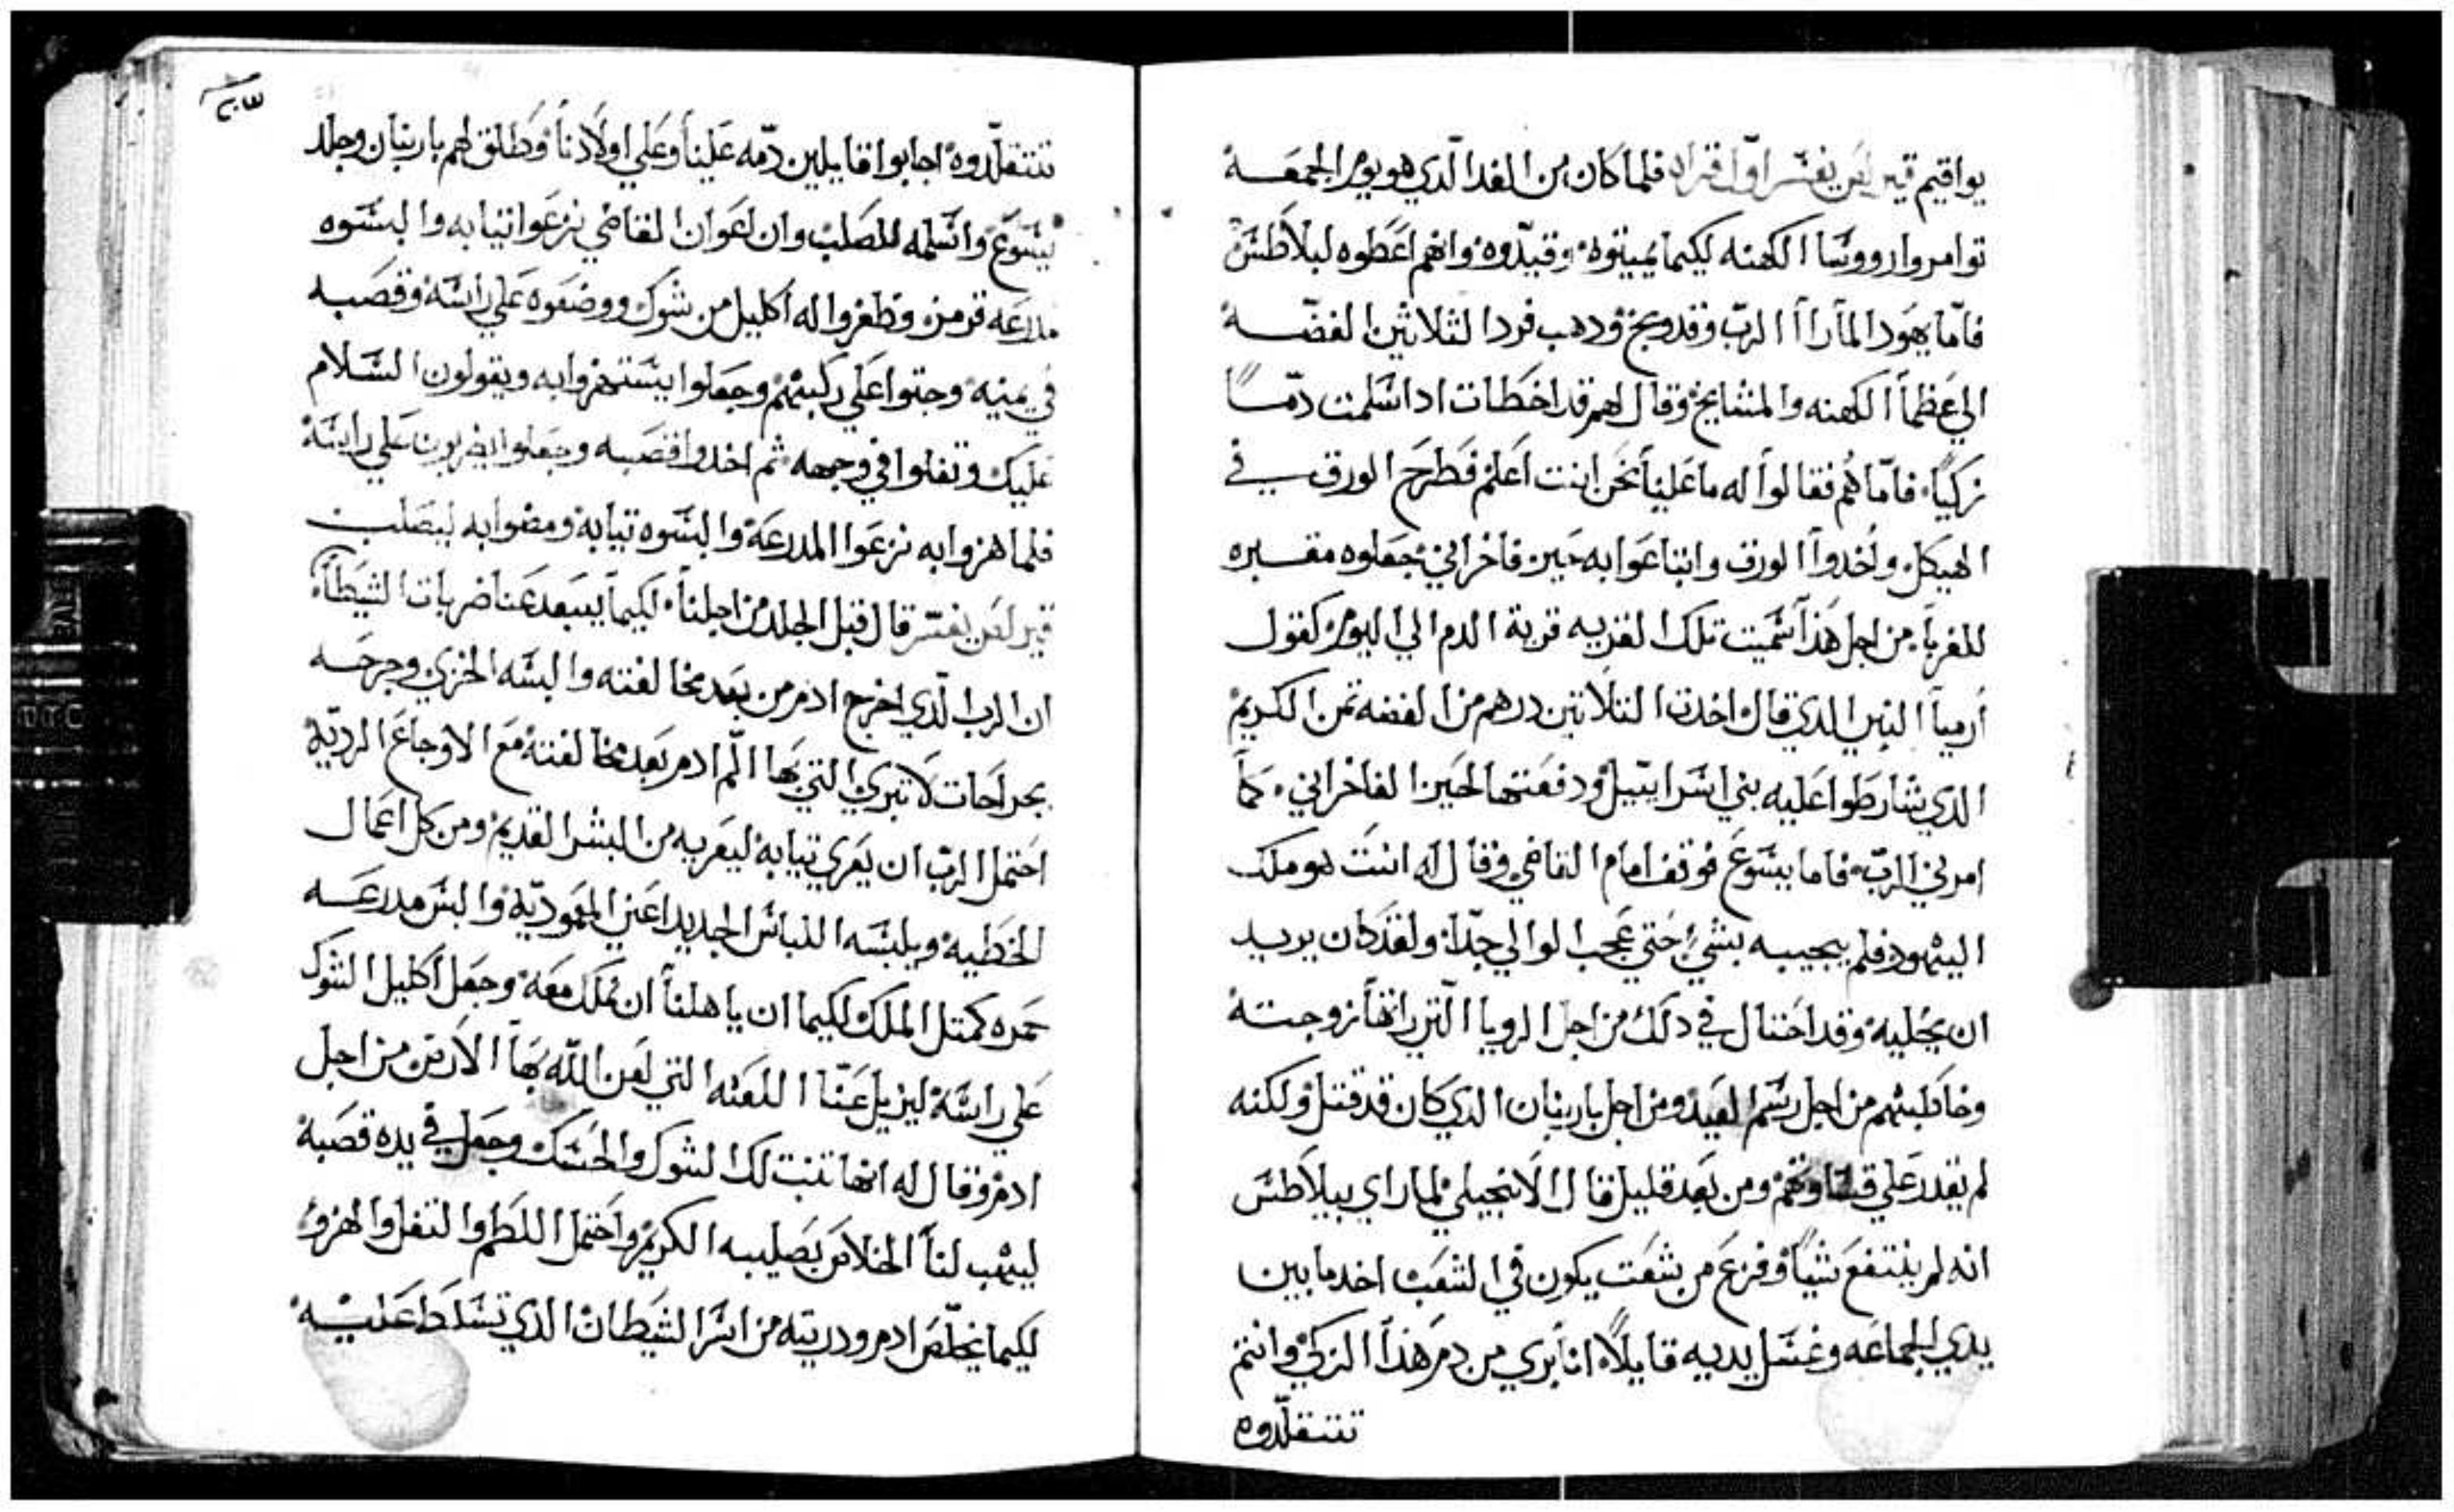 يواقيم قير لص يفسّر اوّل قراه فلما كان من الغد الّذي هو يوم الجمعـــة
توامروا رووسا الكهنه لكيما يميتوه وقيدّوه وانهم اعطوه لبلاطس
فامّا يهودا لما راا الربّ وقد وبخ ودهب فردا لثلاثين الفضّــة
الي عظما الكهنه والمشايخ وقال لهم قد اخطات ادا سلمت دمّـــا
زكيّا فامّا هُم فقالوا له ما علينا نحن انت اعلم فطرح الورق في
الهيكل واخدوا الورق وابتاعوا به حير فاخراني جعلوه مقــبره
للغربا من اجل هذا سميت تلك القريه قرية الدم الي اليوم كقول
ارميا النبي الدي قال اخدت التلاتين درهم من الفضه تمن الكريم
الدي شارطوا عليه بني اسراييل ودفعتها لحير الفاخراني كما
امرني الربّ فاما يسوع فوقف امام القاضي وقال له انت هو ملك
اليهود فلم يجيبه بشيء حتي عجب الوالي جدّا ولقد كان يريــد
ان يخليه وقد احتال في دلك من اجل الرويا التي راتها زوجتــه
وخاطبتهم من اجل رسم العيد ومن اجل باربنان الدي كان قد قتل ولكنه
لم يقدر علي قساوتهم ومن بعد قليل قال الانجيلي لما راي بيلاطس
انه لم ينتفع شيّا وفزع من شعت يكون في الشعب اخد ما بين
يدي الجماعه وغسل يديه قايلاً انا بري من دم هذا الزكي وانتم
تتقلّدوه
٢٠٣
تتقلّدوه اجابوا قايلين دمّه علينا وعلي اولادنا وطلق لهم باربنان وجلد
يسوع واسلمه للصلب وان اعوان القاضي نزعوا تيابه والبسوه
مدرعه قرمز وظفروا له اكليل من شوك ووضعوه علي راسه وقصبــه
في يمينه وجتوا علي ركبهم وجعلوا يستهزوا به ويقولون السلام
عليك وتفلوا في وجهه ثم اخدوا قصبــه وجعلوا يضربون علي راسه
فلما هزوا به نزعوا المدرعة والبسوه تيابه ومضوا به ليصلب
قير لص يفسّر قال قبل الجلد من اجلنا لكيما يبعد عنا ضربات الشيطان
ان الرب الّدي اخرج ادم من بعد مخالفته والبسه الخزي وجرحـه
بجراحات لا تبري التي بها الّم ادم بعد مخالفته مع الاوجاع الرديّة
احتمل الربّ ان يعري تيابه ليعريه من البشر القديم ومن كل اعمال
الخطيه ويلبسه اللباس الجديد اعني المعموديّة والبس مدرعــه
حمره كمتل الملك لكيما ان ياهلنا ان نملك معه وجعل اكليل الشوك
علي راسه ليزيل عنّا اللعنه التي لعن اللّه بها الارض من اجل
ادم وقال له انها تنبت لك الشوك والحسك وجعل في يده قصبة
ليهب لنا الخلاص بصليبه الكريم واحتمل اللطم والتفل والهزو
لكيما يخلّص ادم ودريته من اسر الشيطان الذي تسلط عليــه